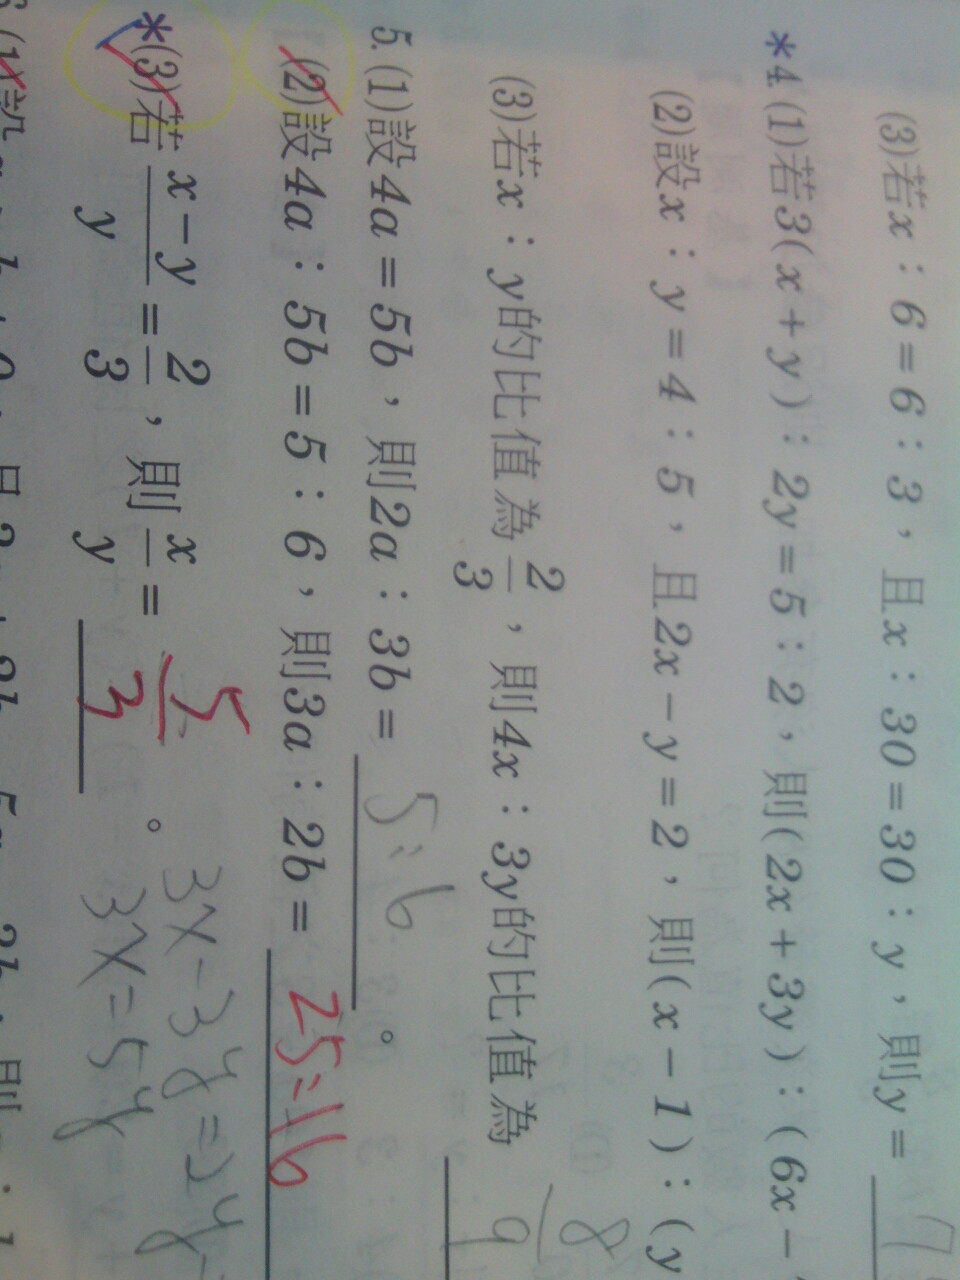 (3)若x：6=6：3，且x：30=30：y，則y=
*4.(1)若3(x+y)：2y=5：2，則(2x+3y)：(6x-
(2)設x：y=4：5，且2x-y=2，則(x-1)：(y
(3)若x：y的比值為2/3，則4x：3y的比值為 8/9
5.(1)設4a=5b，則2a：3b= 5:6 。
(2)設4a：5b=5：6，則3a：2b= 25:16
*(3)若(x-y)/y=2/3，則x/y= 5/3 。
3x-3y=2y
3x=5y